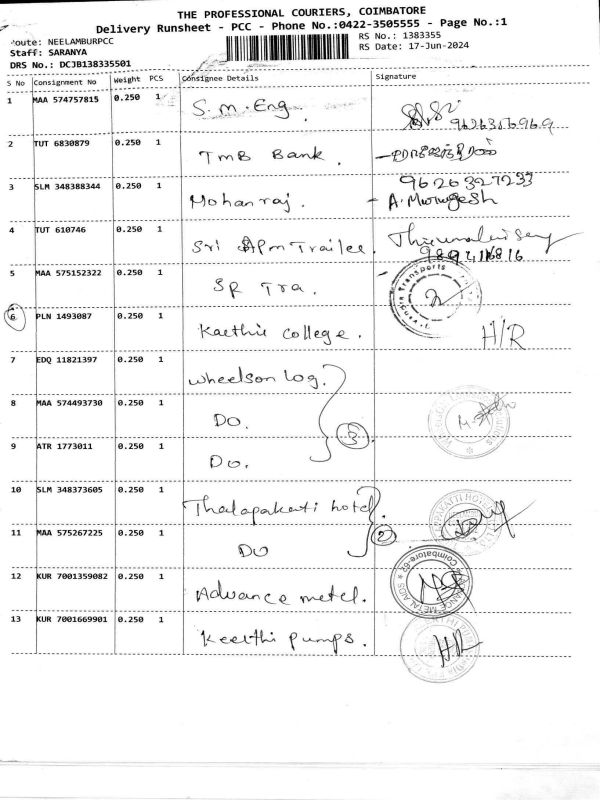 THE PROFESSIONAL COURIERS, COIMBATORE
Delivery Runsheet - PCC - Phone No.:0422-3505555 - Page No.:1
oute: NEELAMBURPCC
RS No.: 1383355
Staff: SARANYA
RS Date: 17-Jun-2024
DRS No.: DCJB138335501
S No Consignment No Weight PCS Consignee Details Signature
1 MAA 574757815 0.250 1 S.M. Eng
2 TUT 6830879 0.250 1 TMB Bank.
3 SLM 348388344 0.250 1 Mohanraj. 9626327233
- A. Murugesh
4 TUT 610746 0.250 1 Sri Trailer
9894116816
5 MAA 575152322 0.250 1 SP Tra.
6 PLN 1493087 0.250 1 Kaethir college. H/R
7 EDQ 11821397 0.250 1 Wheelson log.
8 MAA 574493730 0.250 1 DO.
3
9 ATR 1773011 0.250 1 DO.
10 SLM 348373605 0.250 1 Thalapakati hotel.
2
11 MAA 575267225 0.250 1 DO
12 KUR 7001359082 0.250 1 Advance metel.
Coimbatore-62
ADVANCE METALAGS
13 KUR 7001669901 0.250 1 Keerthi pumps. HR